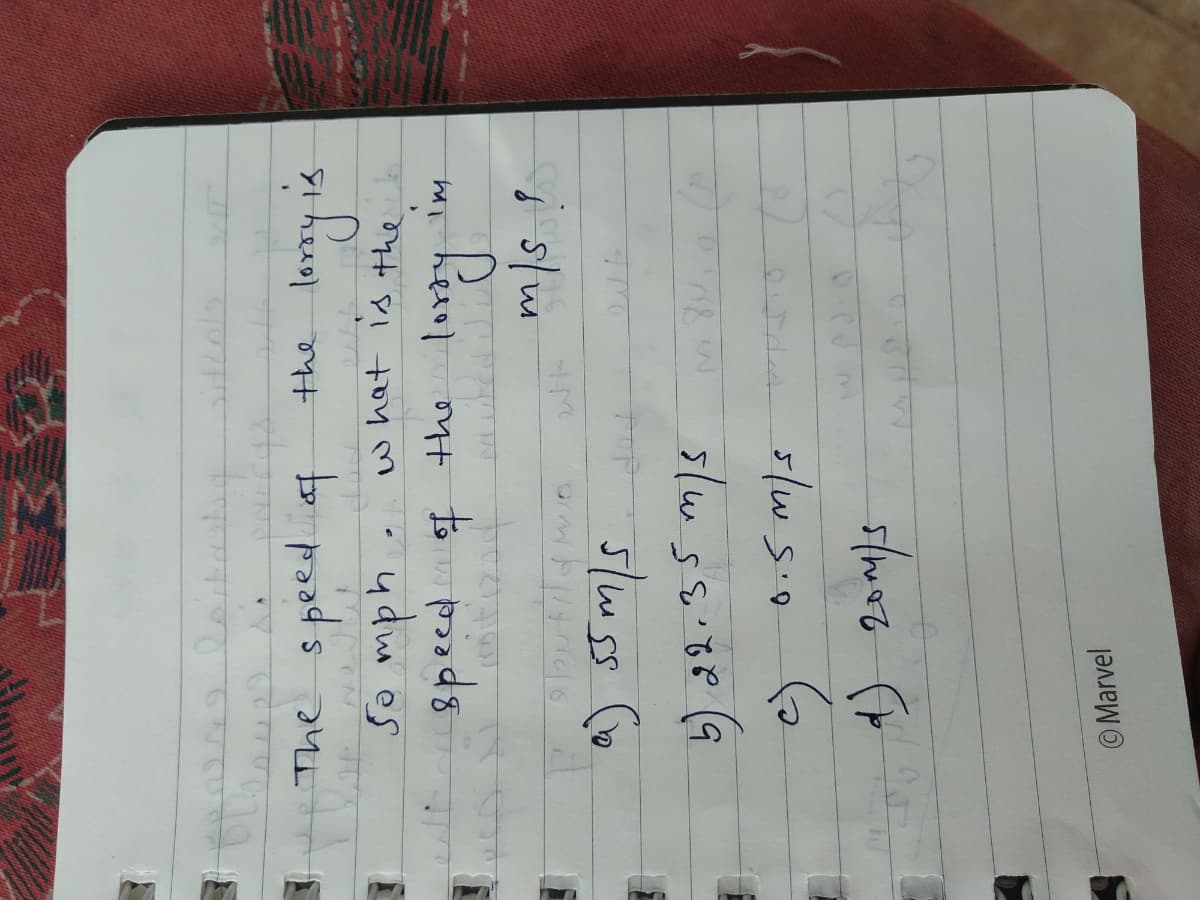 The speed of the lorry is
50 mph. what is the
speed of the lorry in
m/s ?
a) 55 m/s
b) 22.35 m/s
c) 0.5 m/s
d) 20 m/s
© Marvel